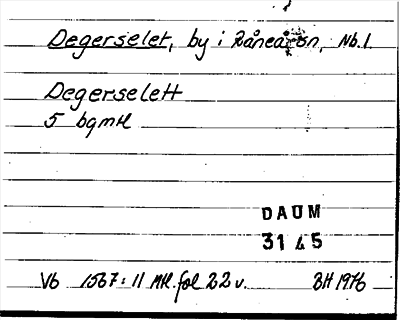 Degerselet, by i Råneå sn, Nb.l.
Degerselett
5 bqmH
DAUM
31 45
Vb 1567: 11 MH. fol 22 v. BH 1976